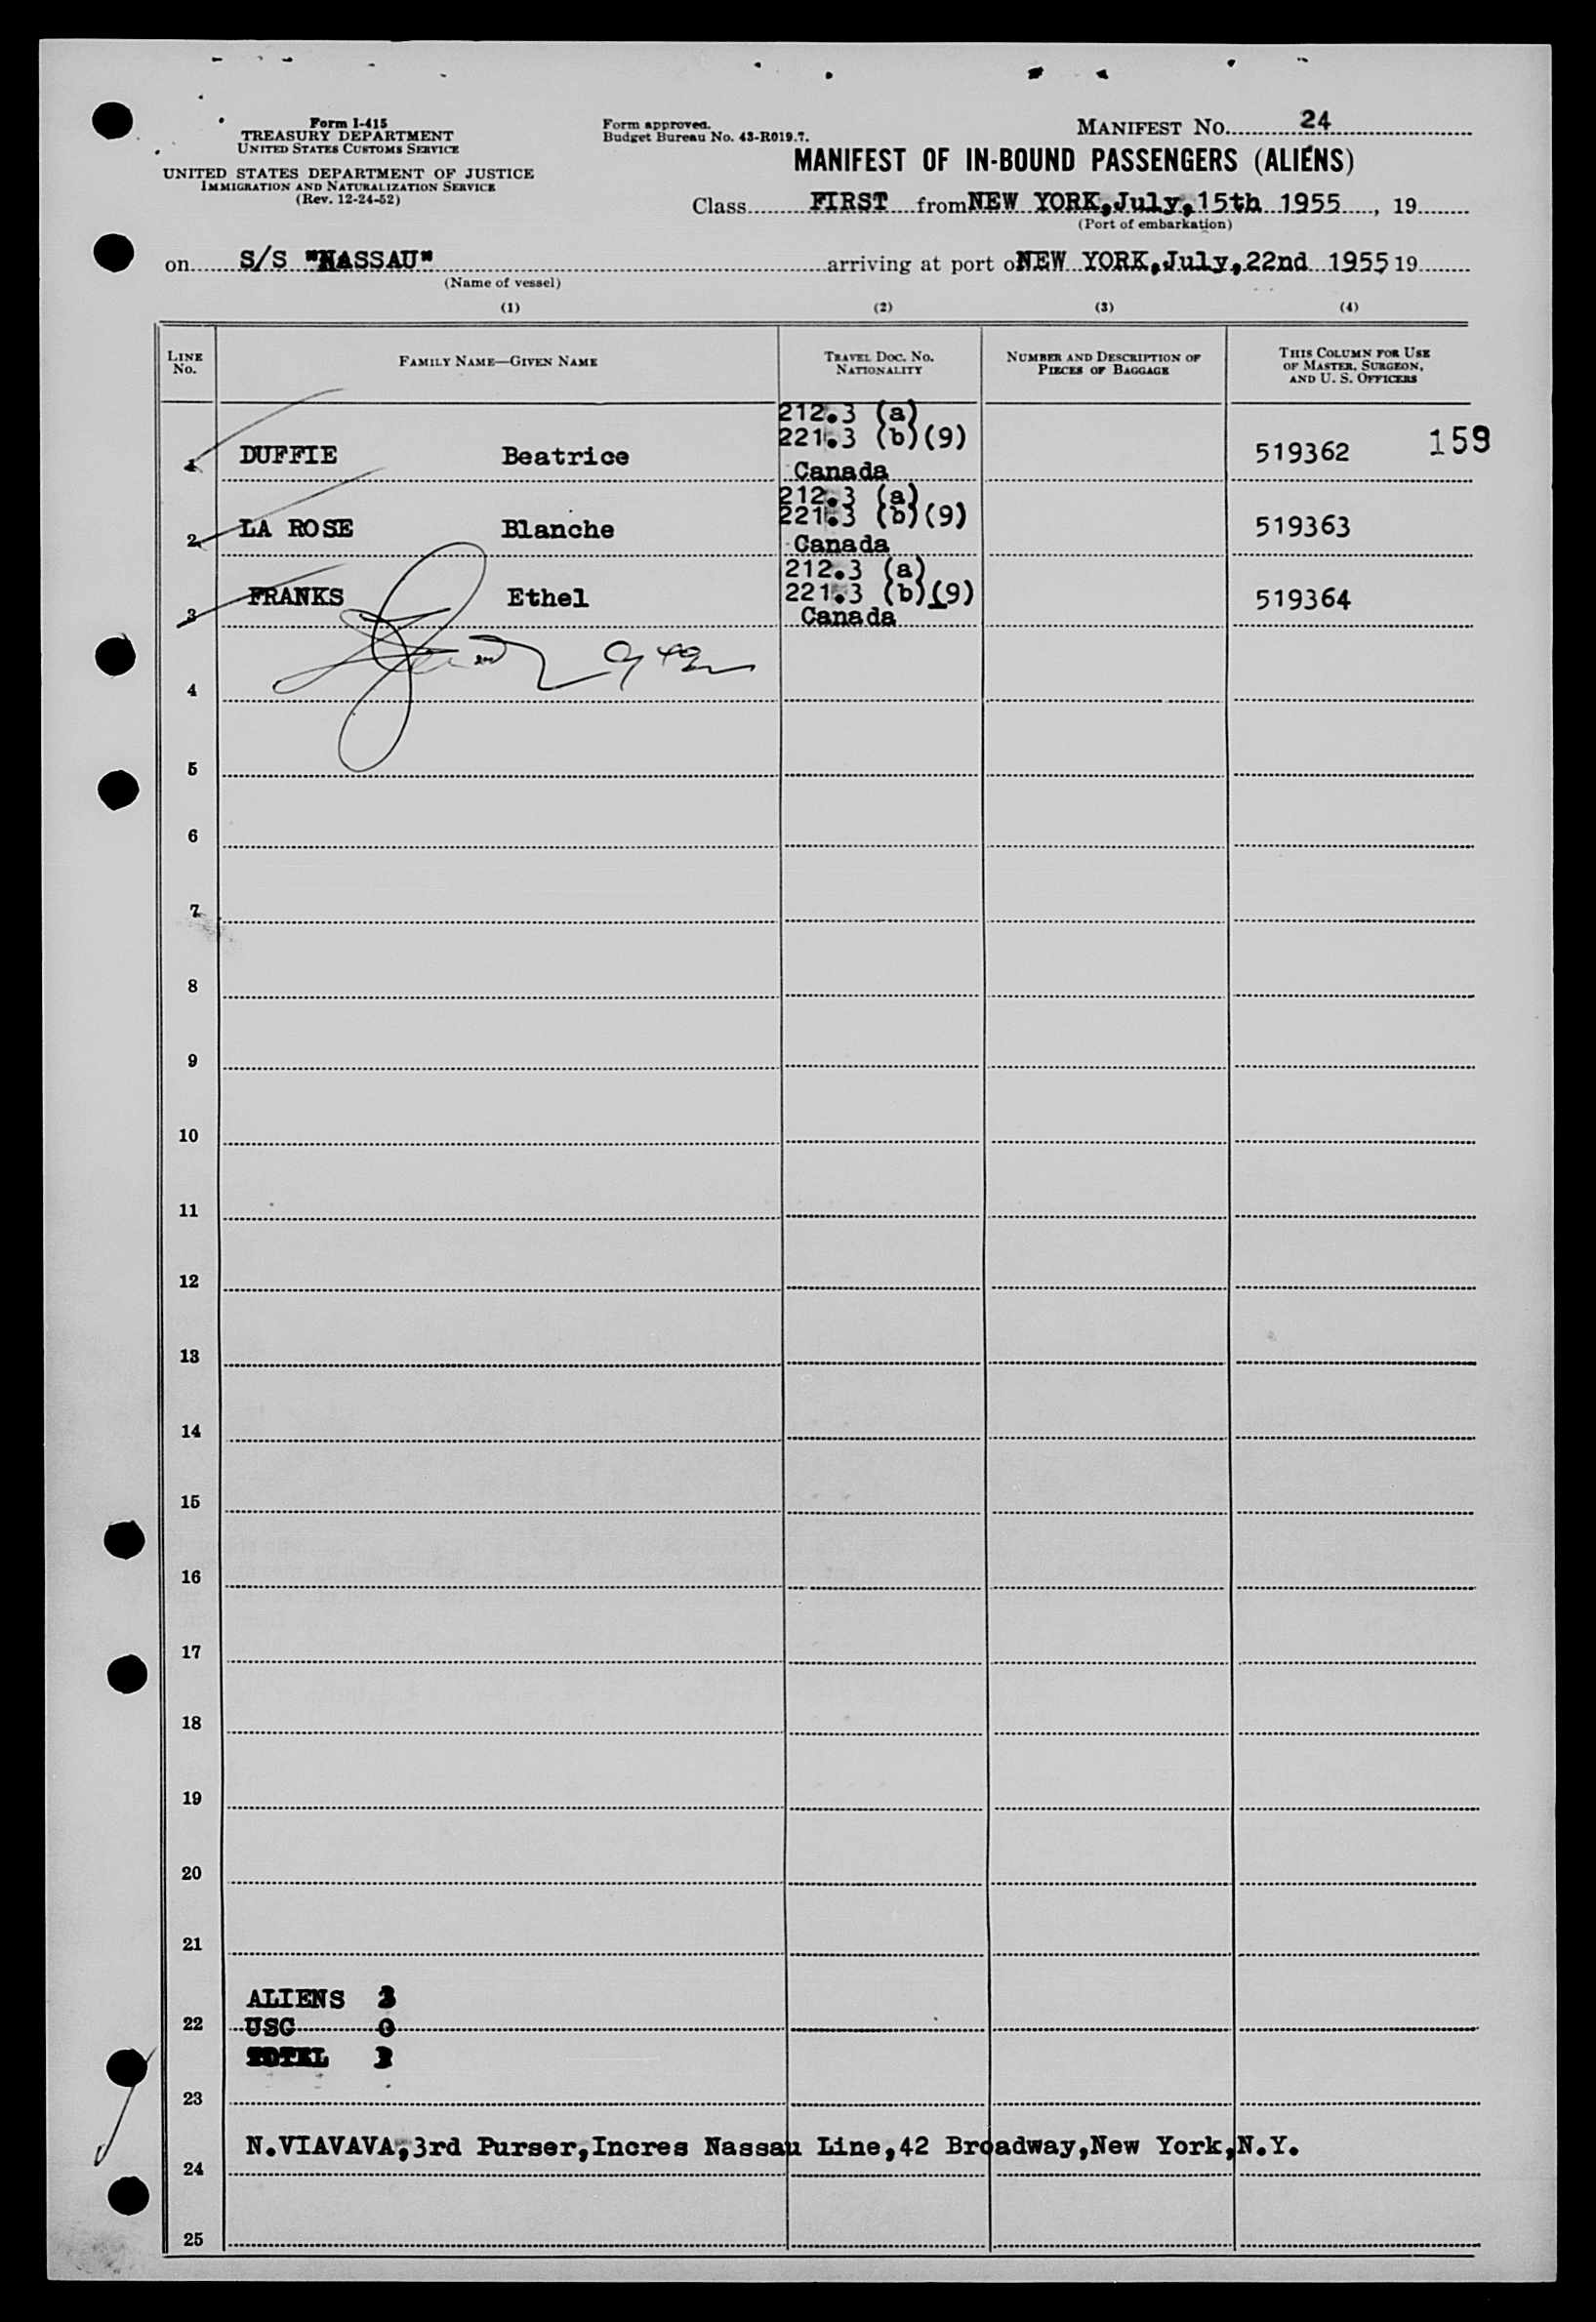 Form I-415
TREASURY DEPARTMENT
UNITED STATES CUSTOMS SERVICE
UNITED STATES DEPARTMENT OF JUSTICE
IMMIGRATION AND NATURALIZATION SERVICE
(Rev. 12-24-52)
Form approved.
Budget Bureau No. 43-R019.7.
MANIFEST NO. 24
MANIFEST OF IN-BOUND PASSENGERS (ALIENS)
Class FIRST from NEW YORK,July,15th 1955, 19
(Port of embarkation)
on S/S "NASSAU" arriving at port of NEW YORK,July,22nd 1955 19
(Name of vessel)
(1) (2) (3) (4)
LINE NO.
FAMILY NAME—GIVEN NAME
TRAVEL DOC. NO.
NATIONALITY
NUMBER AND DESCRIPTION OF
PIECES OF BAGGAGE
THIS COLUMN FOR USE
OF MASTER, SURGEON,
AND U. S. OFFICERS
212.3 (a)
221.3 (b)(9)
1 DUFFIE Beatrice Canada 519362 159
212.3 (a)
221.3 (b)(9)
2 LA ROSE Blanche Canada 519363
212.3 (a)
221.3 (b)(9)
3 FRANKS Ethel Canada 519364
4
5
6
7
8
9
10
11
12
13
14
15
16
17
18
19
20
21
ALIENS 3
22 USC 0
TOTAL 3
23
N.VIAVAVA,3rd Purser,Incres Nassau Line,42 Broadway,New York,N.Y.
24
25